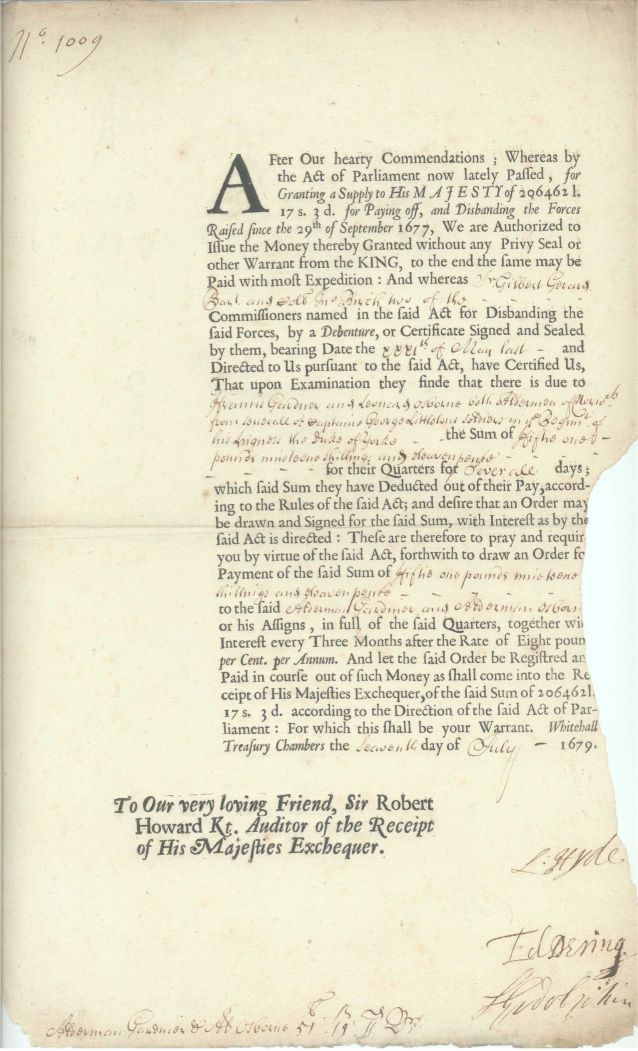 No. 1009
AFter Our hearty Commendations ; Whereas by
the Act of Parliament now lately Paſſed, for
Granting a Supply to His MAJESTY of 206462 l.
17 s. 3 d. for Paying off, and Disbanding the Forces
Raiſed ſince the 29th of September 1677, We are Authorized to
Iſſue the Money thereby Granted without any Privy Seal or
other Warrant from the KING, to the end the ſame may be
Paid with moſt Expedition : And whereas Sr Gilbert Gerard
Bart and Coll Jno Birch two of the
Commiſſioners named in the ſaid Act for Disbanding the
ſaid Forces, by a Debenture, or Certificate Signed and Sealed
by them, bearing Date the xxxith of May last - and
Directed to Us purſuant to the ſaid Act, have Certified Us,
That upon Examination they finde that there is due to
Francis Gardner and Leonard Osborne both Aldermen of
from severall of Captaine George Littletons soldiers in ye Regimt of
his Highness the Duke of Yorke - the Sum of fiftie one
pounds nineteene shillings and eleaven pence -
- - - for their Quarters for severall days;
which ſaid Sum they have Deducted out of their Pay, accord-
ing to the Rules of the ſaid Act; and deſire that an Order may
be drawn and Signed for the ſaid Sum, with Intereſt as by the
ſaid Act is directed : Theſe are therefore to pray and requir
you by virtue of the ſaid Act, forthwith to draw an Order fo
Payment of the ſaid Sum of fiftie one pounds nineteene
shillings and eleaven pence - - - -
to the ſaid Alderman Gardner and Alderman Osborn
or his Aſſigns, in full of the ſaid Quarters, together wi
Intereſt every Three Months after the Rate of Eight poun
per Cent. per Annum. And let the ſaid Order be Regiſtred an
Paid in courſe out of ſuch Money as ſhall come into the Re
ceipt of His Majeſties Exchequer, of the ſaid Sum of 206462 l.
17 s. 3 d. according to the Direction of the ſaid Act of Par-
liament : For which this ſhall be your Warrant. Whitehall
Treaſury Chambers the seaventh day of July - 1679.
To Our very loving Friend, Sir Robert
Howard Kt. Auditor of the Receipt
of His Majeſties Exchequer.
L: Hyde
Ed Dering
S Godolphin
Alderman Gardner & Al Osborne 51 : 19 : 11